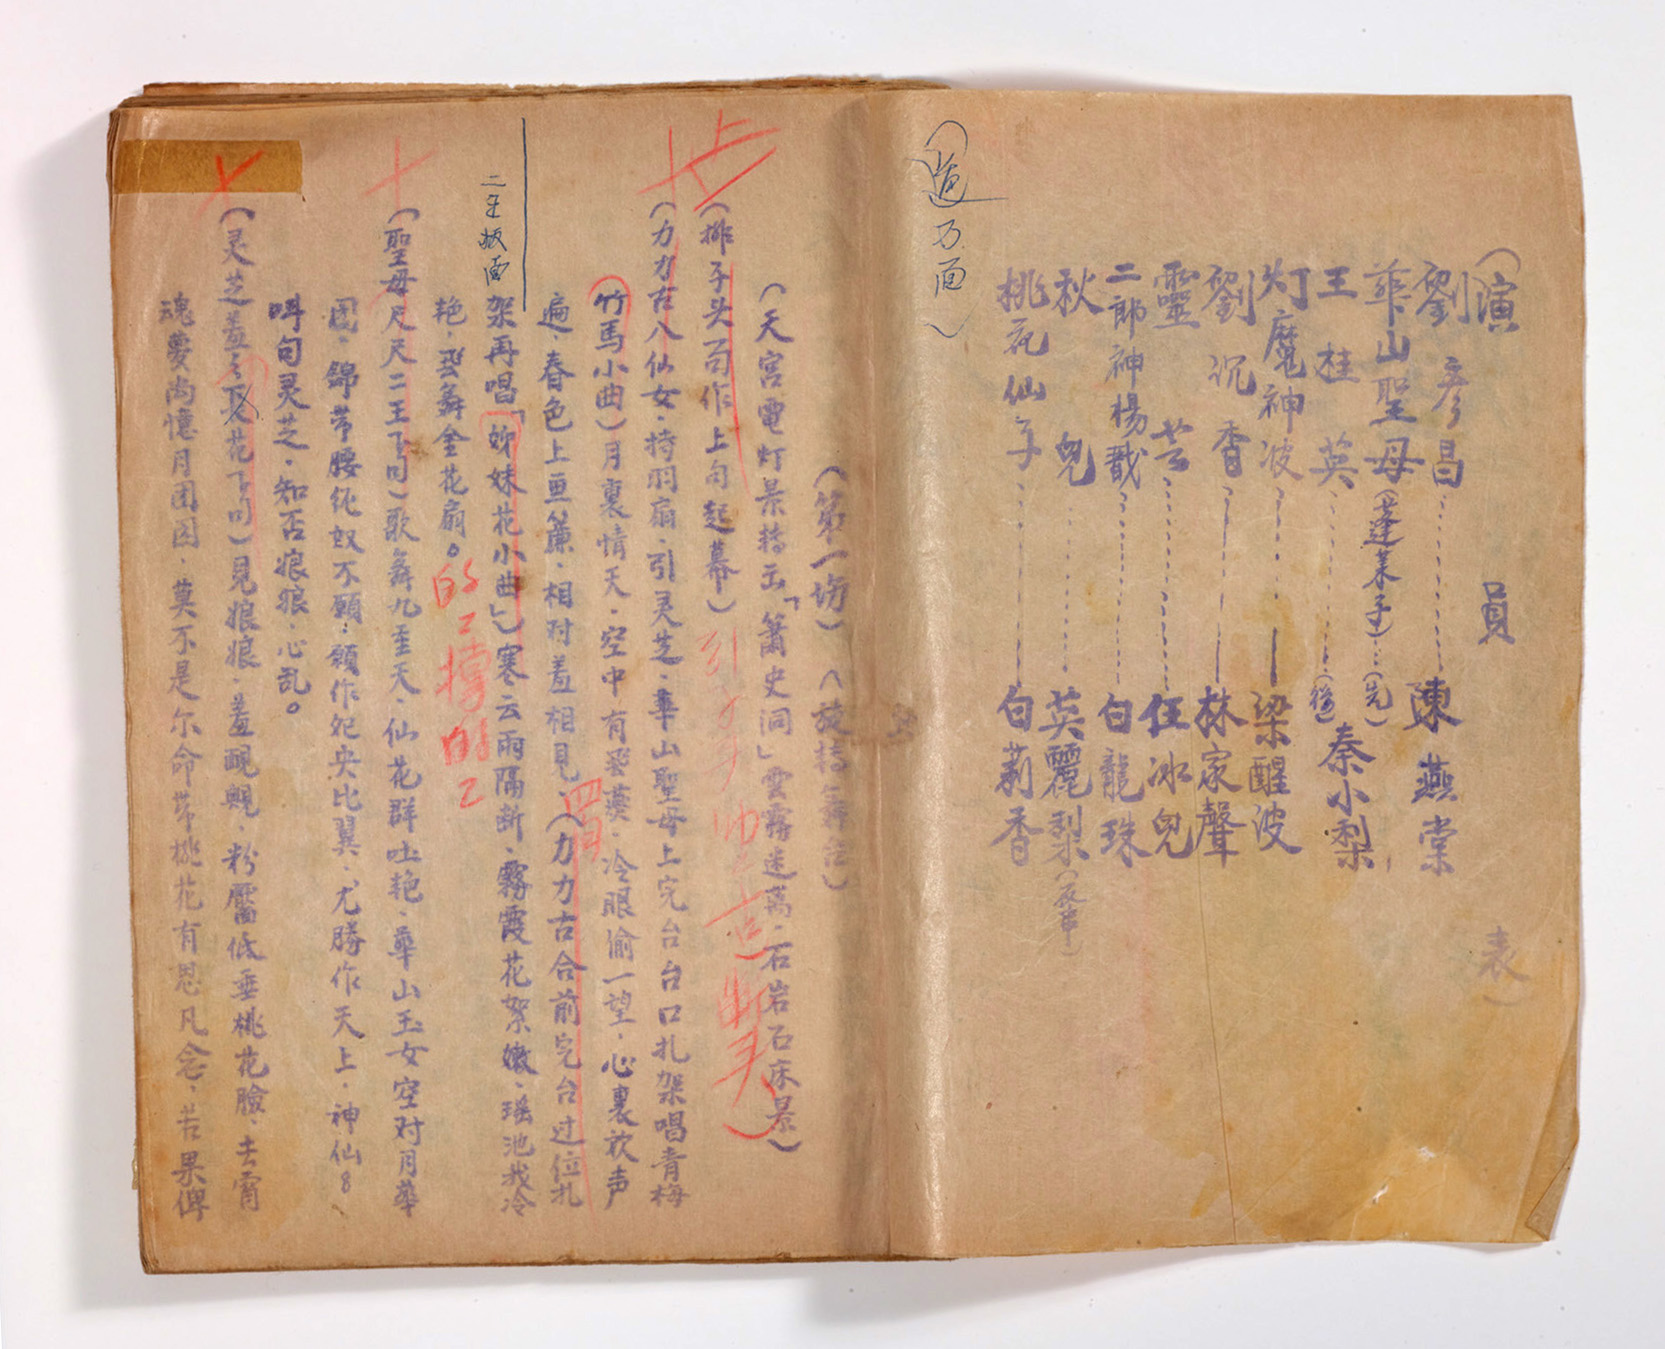 （演員表）
劉彥昌……陳燕棠
華山聖母（蓬萊子）…（先）
王桂英……（後）秦小梨
灯魔神波……梁醒波
劉沉香……林家聲
靈芝……任冰兒
二郎神楊戩……白龍珠
秋兒……英麗梨（反串）
桃花仙子……白莉香
（第一塲）（旋轉舞台）
（天宮電灯景轉云「簫史洞」雲霧迷萬．石岩石床景）
（排子头句作上句起幕）
（力力古八仙女．持羽扇．引灵芝．華山聖母上完台台口扎架唱青梅
竹馬小曲）月裏情天．空中有飛燕．冷眼偷一望．心裏放声
遍．春色上画簾．相对羞相見．（力力古合前完台过位扎
架再唱「姊妹花小曲」）寒云雨隔断．霧霞花絮嫩．瑶池我冷
艳．飛舞全花扇。
二王板面
的的
（聖母尺尺二王下句）歌舞九重天．仙花群吐艳．華山玉女空对月華
圓．錦帶腰纯奴不願．願作夗央比翼．尤勝作天上．神仙8
呌句灵芝．知否娘娘．心乱。
（灵芝羞羞花下句）見娘娘．羞靦靦．粉靨低垂桃花臉．去宵
魂夢尚憶月团团．莫不是尔命帶桃花有恩凡念．苦果俾